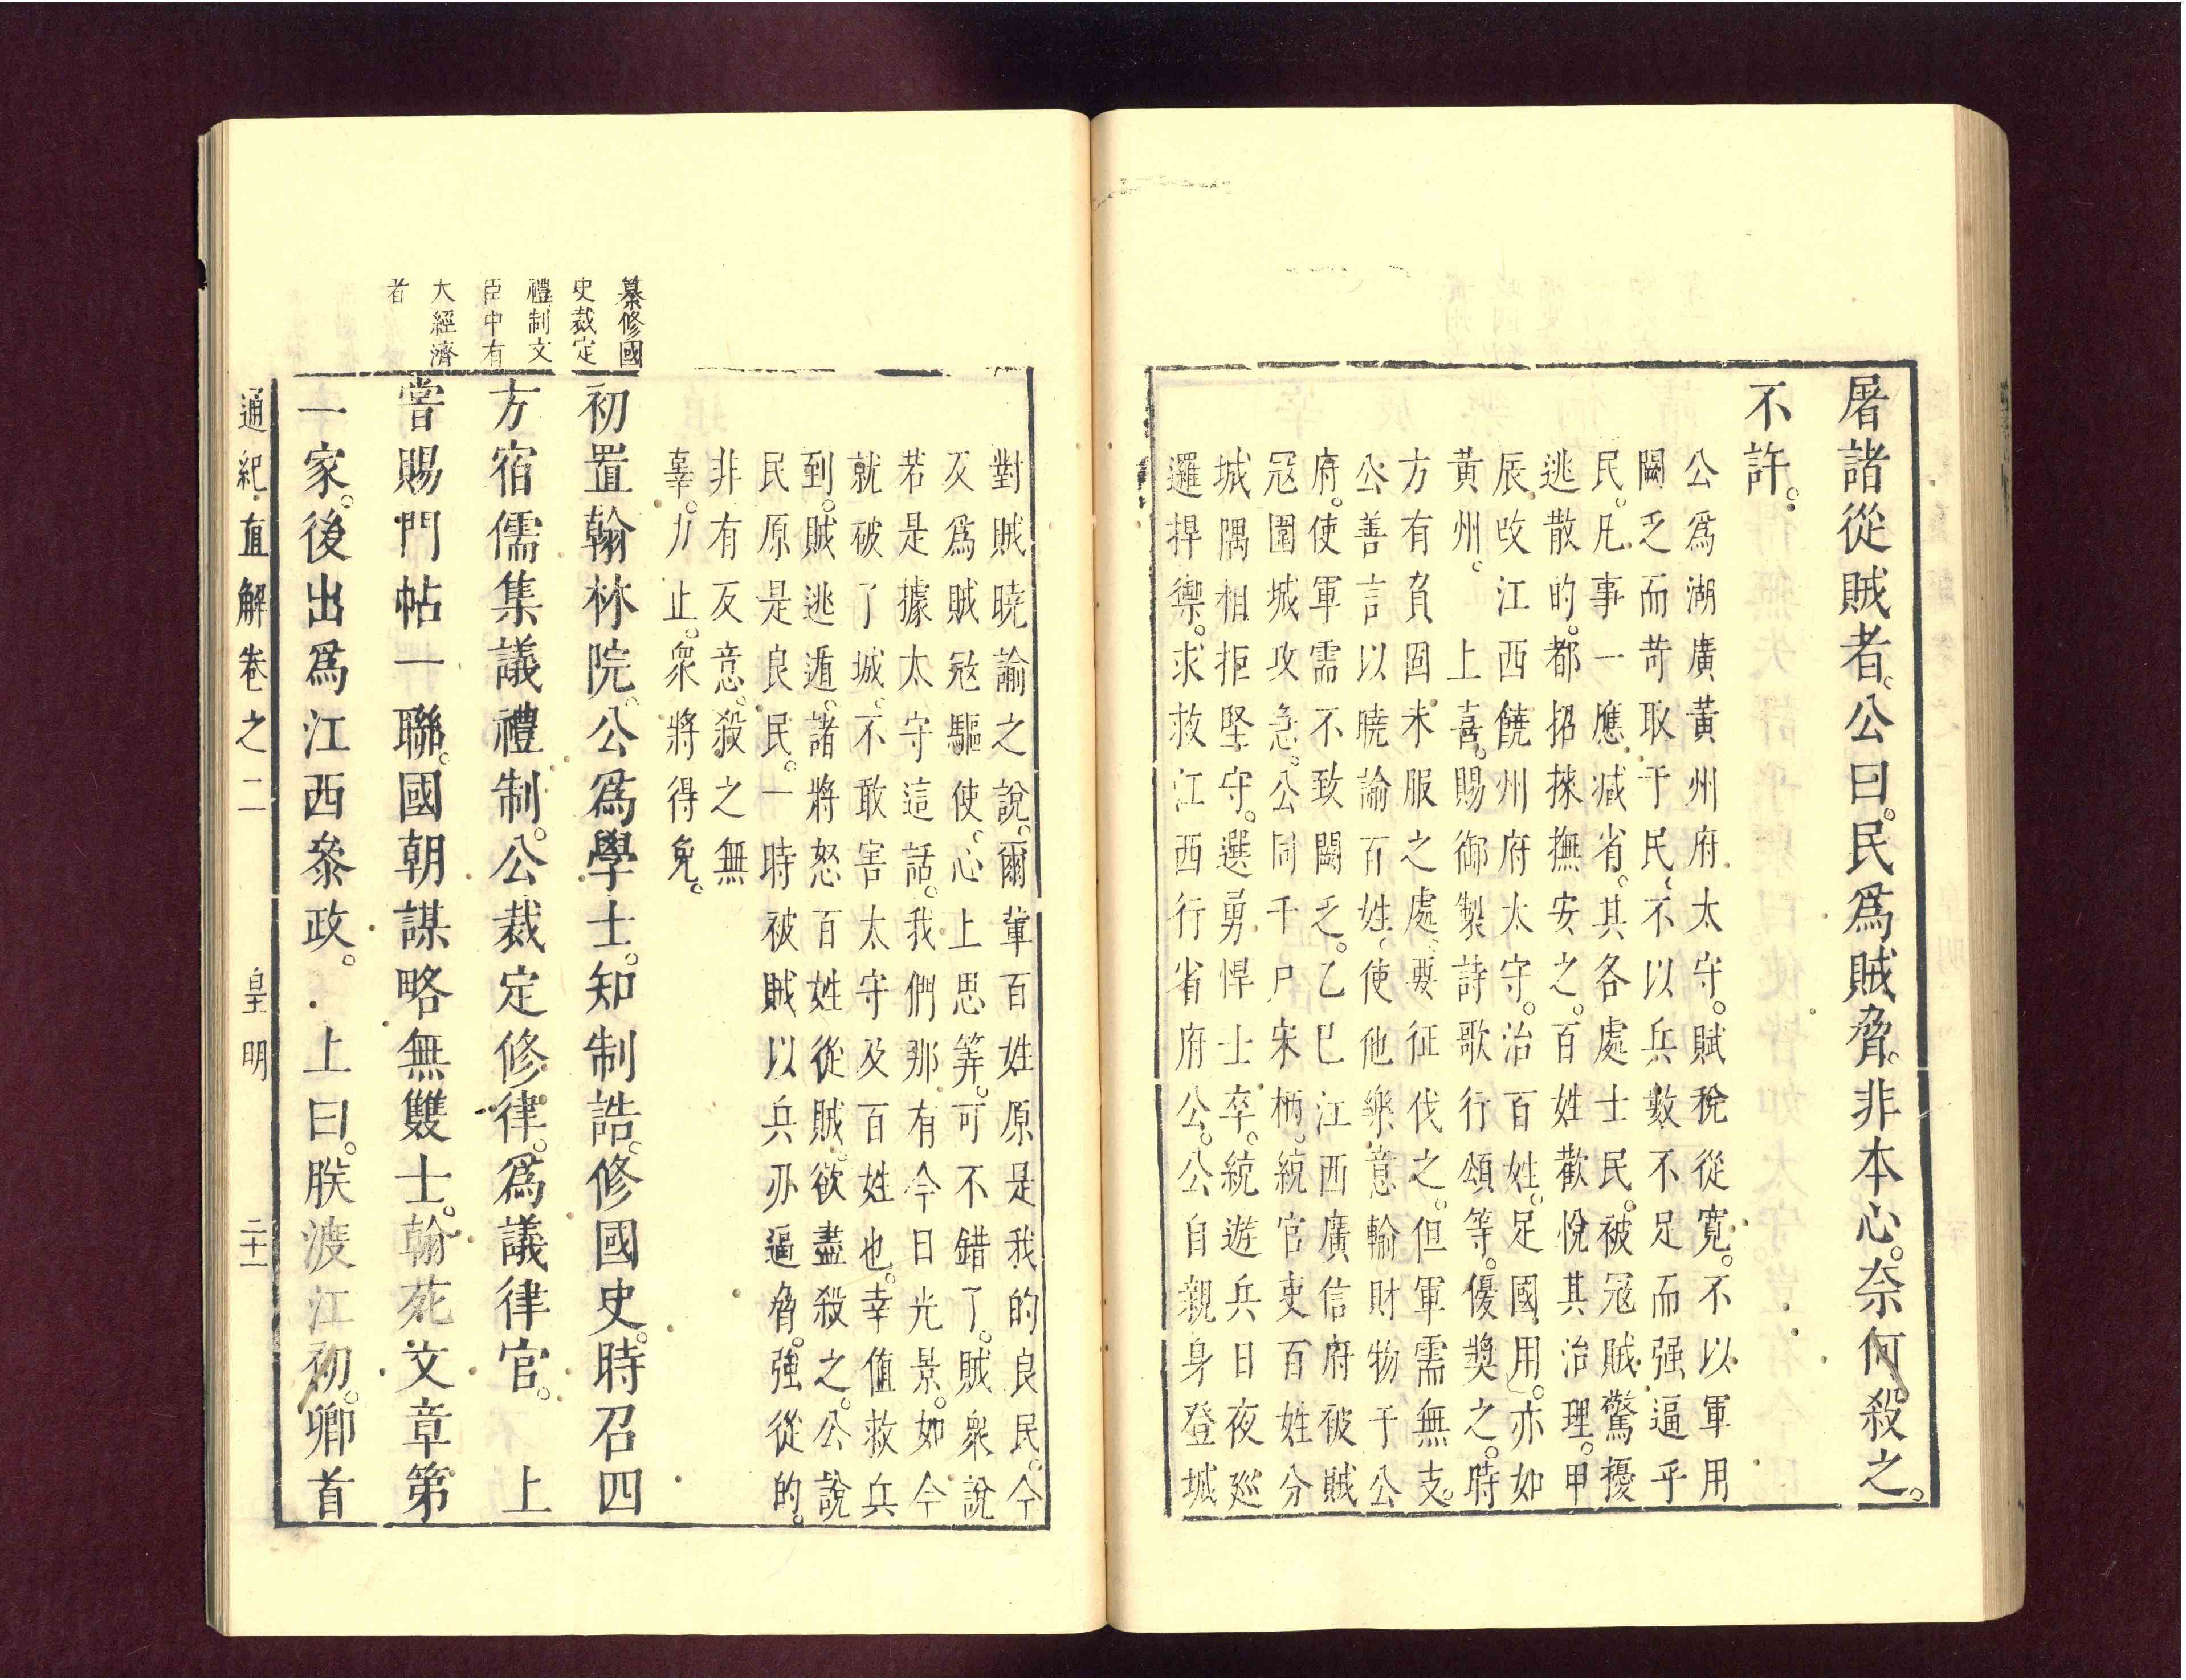 屠諸從賊者。公曰。民爲賊脅。非本心。奈何殺之。
不許。
公爲湖廣黃州府太守。賦稅從寬。不以軍用
闕乏而苛取于民、不以兵數不足而强逼乎
民。凡事一應減省。其各處士民。被冦賊驚擾
逃散的。都招揀撫安之。百姓歡悅其治理。甲
辰改江西饒州府太守。治百姓。足國用。亦如
黃州。 上喜。賜御製詩歌行頌等。優奬之。時
方有負固未服之處、要征伐之。但軍需無支。
公善言以曉諭百姓、使他樂意輸財物于公
府。使軍需不致闕乏。乙巳江西廣信府被賊
冦圍城攻急。公同千戸宋柄。統官吏百姓分
城隅相拒堅守。選勇悍士卒。統遊兵日夜廵
邏捍禦。求救江西行省府公。公自親身登城
對賊曉諭之說。爾輩百姓原是我的良民。今
反爲賊冦驅使、心上思筭。可不錯了。賊衆說
若是據太守這話。我們那有今日光景。如今
就破了城、不敢害太守及百姓也。幸值救兵
到。賊逃遁。諸將怒百姓從賊。欲盡殺之。公說
民原是良民。一時被賊以兵刃逼脅。強從的。
非有反意。殺之無
辜。力止。衆將得免。
纂修國
史裁定
禮制文
臣中有
大經濟
者
初置翰林院。公爲學士。知制誥。修國史。時召四
方宿儒集議禮制。公裁定修律。爲議律官。 上
嘗賜門帖一聯。國朝謀略無雙士。翰苑文章第
一家。後出爲江西叅政。 上曰。朕渡江初。卿首
通紀直解卷之二 皇明 二十一